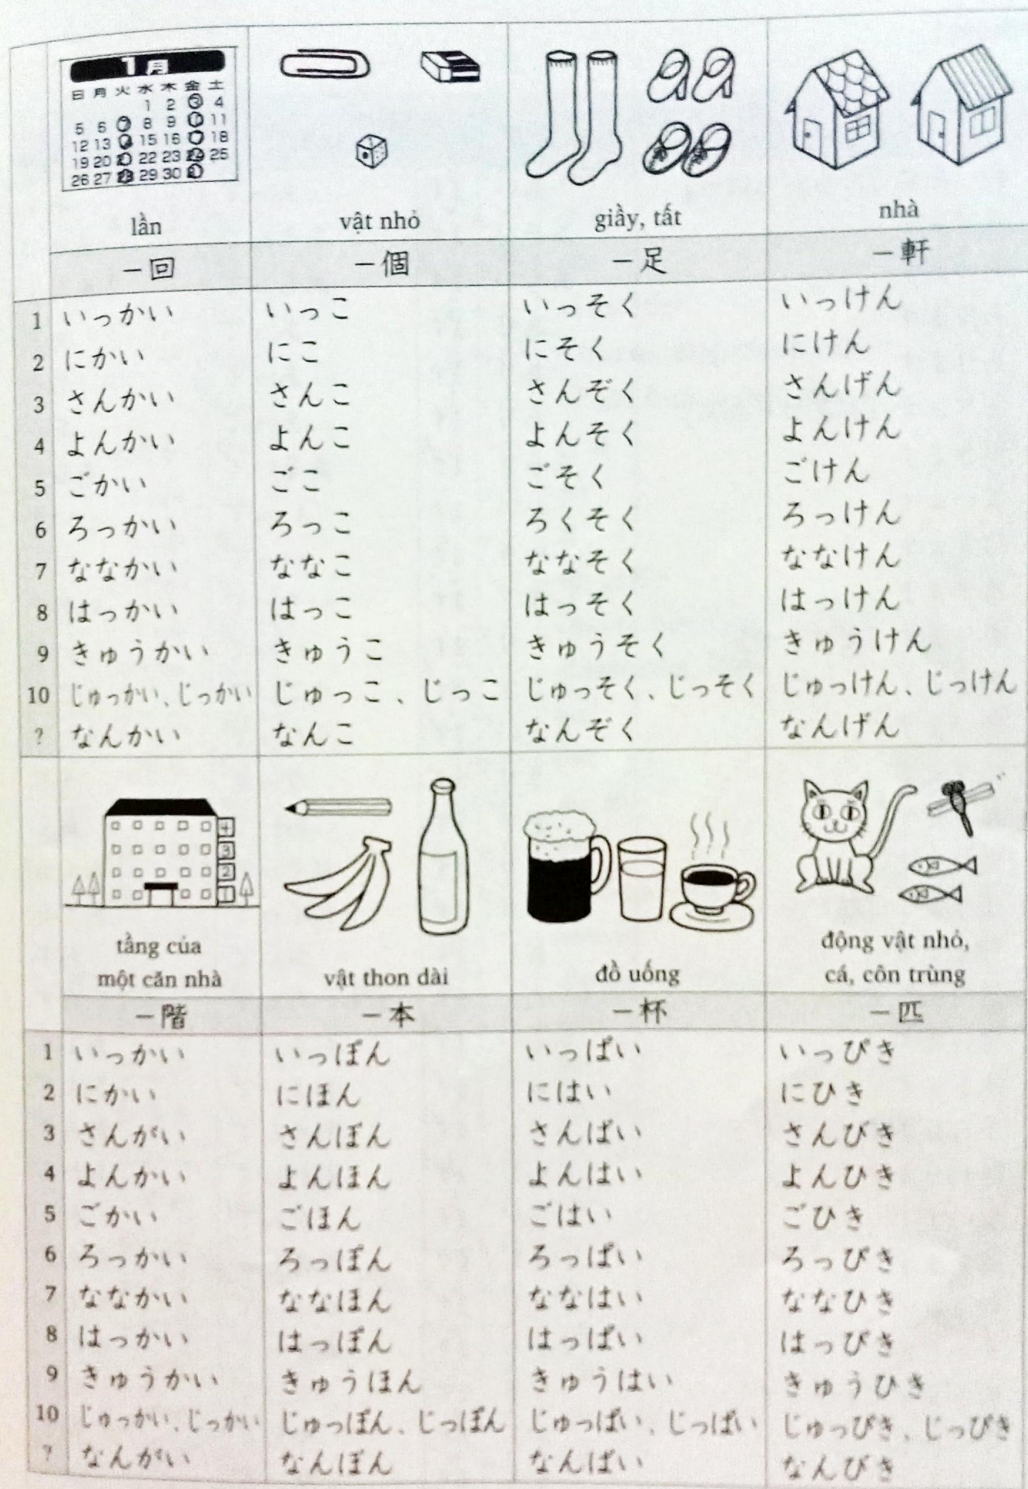 1月
日 月 火 水 木 金 土
1 2 3 4
5 6 7 8 9 10 11
12 13 14 15 16 17 18
19 20 21 22 23 24 25
26 27 28 29 30 31
lần
vật nhỏ
giầy, tất
nhà
ー回 ー個 ー足 ー軒
1 いっかい いっこ いっそく いっけん
2 にかい にこ にそく にけん
3 さんかい さんこ さんぞく さんげん
4 よんかい よんこ よんそく よんけん
5 ごかい ごこ ごそく ごけん
6 ろっかい ろっこ ろくそく ろっけん
7 ななかい ななこ ななそく ななけん
8 はっかい はっこ はっそく はっけん
9 きゅうかい きゅうこ きゅうそく きゅうけん
10 じゅっかい、じっかい じゅっこ、じっこ じゅっそく、じっそく じゅっけん、じっけん
? なんかい なんこ なんぞく なんげん
4
3
2
1
tầng của
một căn nhà
vật thon dài
đồ uống
động vật nhỏ,
cá, côn trùng
ー階 ー本 ー杯 ー匹
1 いっかい いっぽん いっぱい いっぴき
2 にかい にほん にはい にひき
3 さんがい さんぼん さんばい さんびき
4 よんかい よんほん よんはい よんひき
5 ごかい ごほん ごはい ごひき
6 ろっかい ろっぽん ろっぱい ろっぴき
7 ななかい ななほん ななはい ななひき
8 はっかい はっぽん はっぱい はっぴき
9 きゅうかい きゅうほん きゅうはい きゅうひき
10 じゅっかい、じっかい じゅっぽん、じっぽん じゅっぱい、じっぱい じゅっぴき、じっぴき
? なんがい なんぼん なんばい なんびき